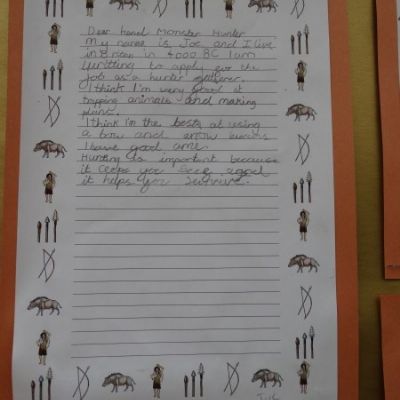 Dear head Monster Hunter
My name is Joe and I live
in Britain in 4000 BC I am
writting to apply for the
job as a hunter gatherer.
I think I'm very good at
trapping animals and making
plans.
I think I'm the best at using
a bow and arrow because
I have good aim.
Hunting is important because
it keeps you
it helps you survive.